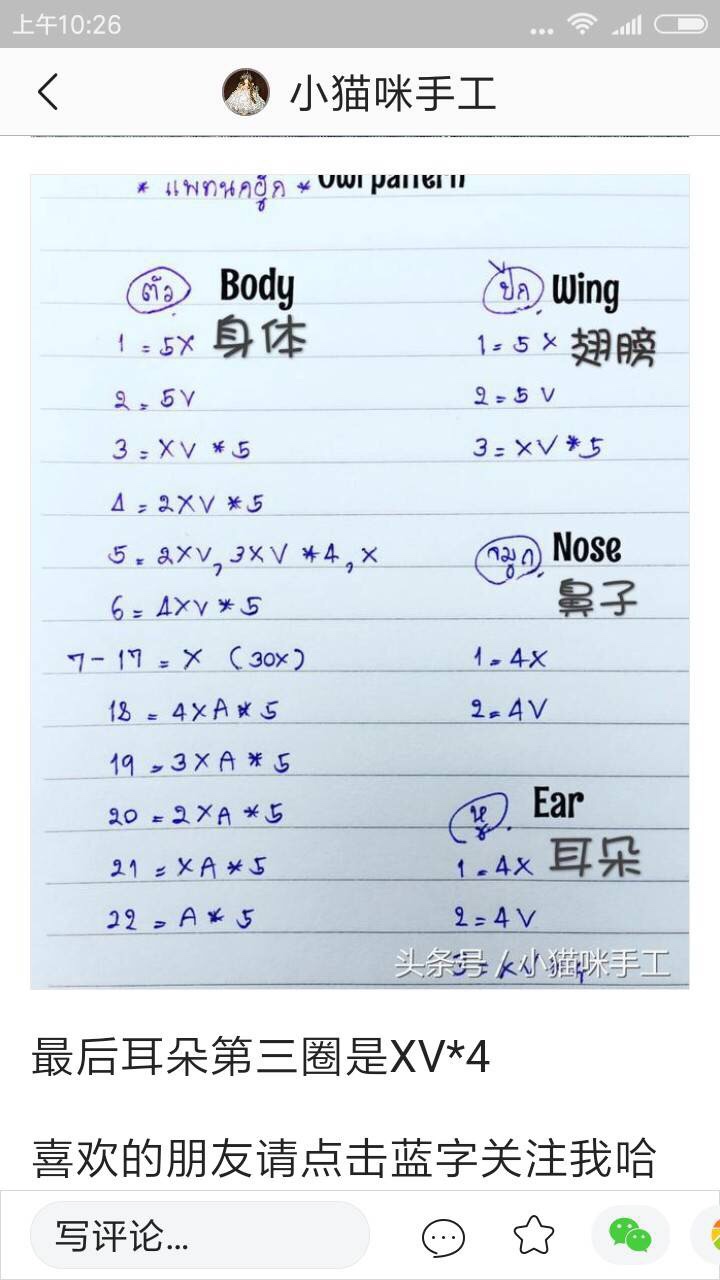 上午10:26
小猫咪手工
* แพทนคฮูก * Owl pattern
ตัว Body
1 = 5X 身体
2 = 5V
3 = XV * 5
4 = 2XV * 5
5 = 2XV, 3XV * 4, X
6 = 4XV * 5
7 - 17 = X (30X)
18 = 4XA * 5
19 = 3XA * 5
20 = 2XA * 5
21 = XA * 5
22 = A * 5
ปีก Wing
1 = 5X 翅膀
2 = 5V
3 = XV * 5
จมูก Nose
鼻子
1 = 4X
2 = 4V
หู Ear
1 = 4X 耳朵
2 = 4V
头条号 / 小猫咪手工
最后耳朵第三圈是XV*4
喜欢的朋友请点击蓝字关注我哈
写评论...